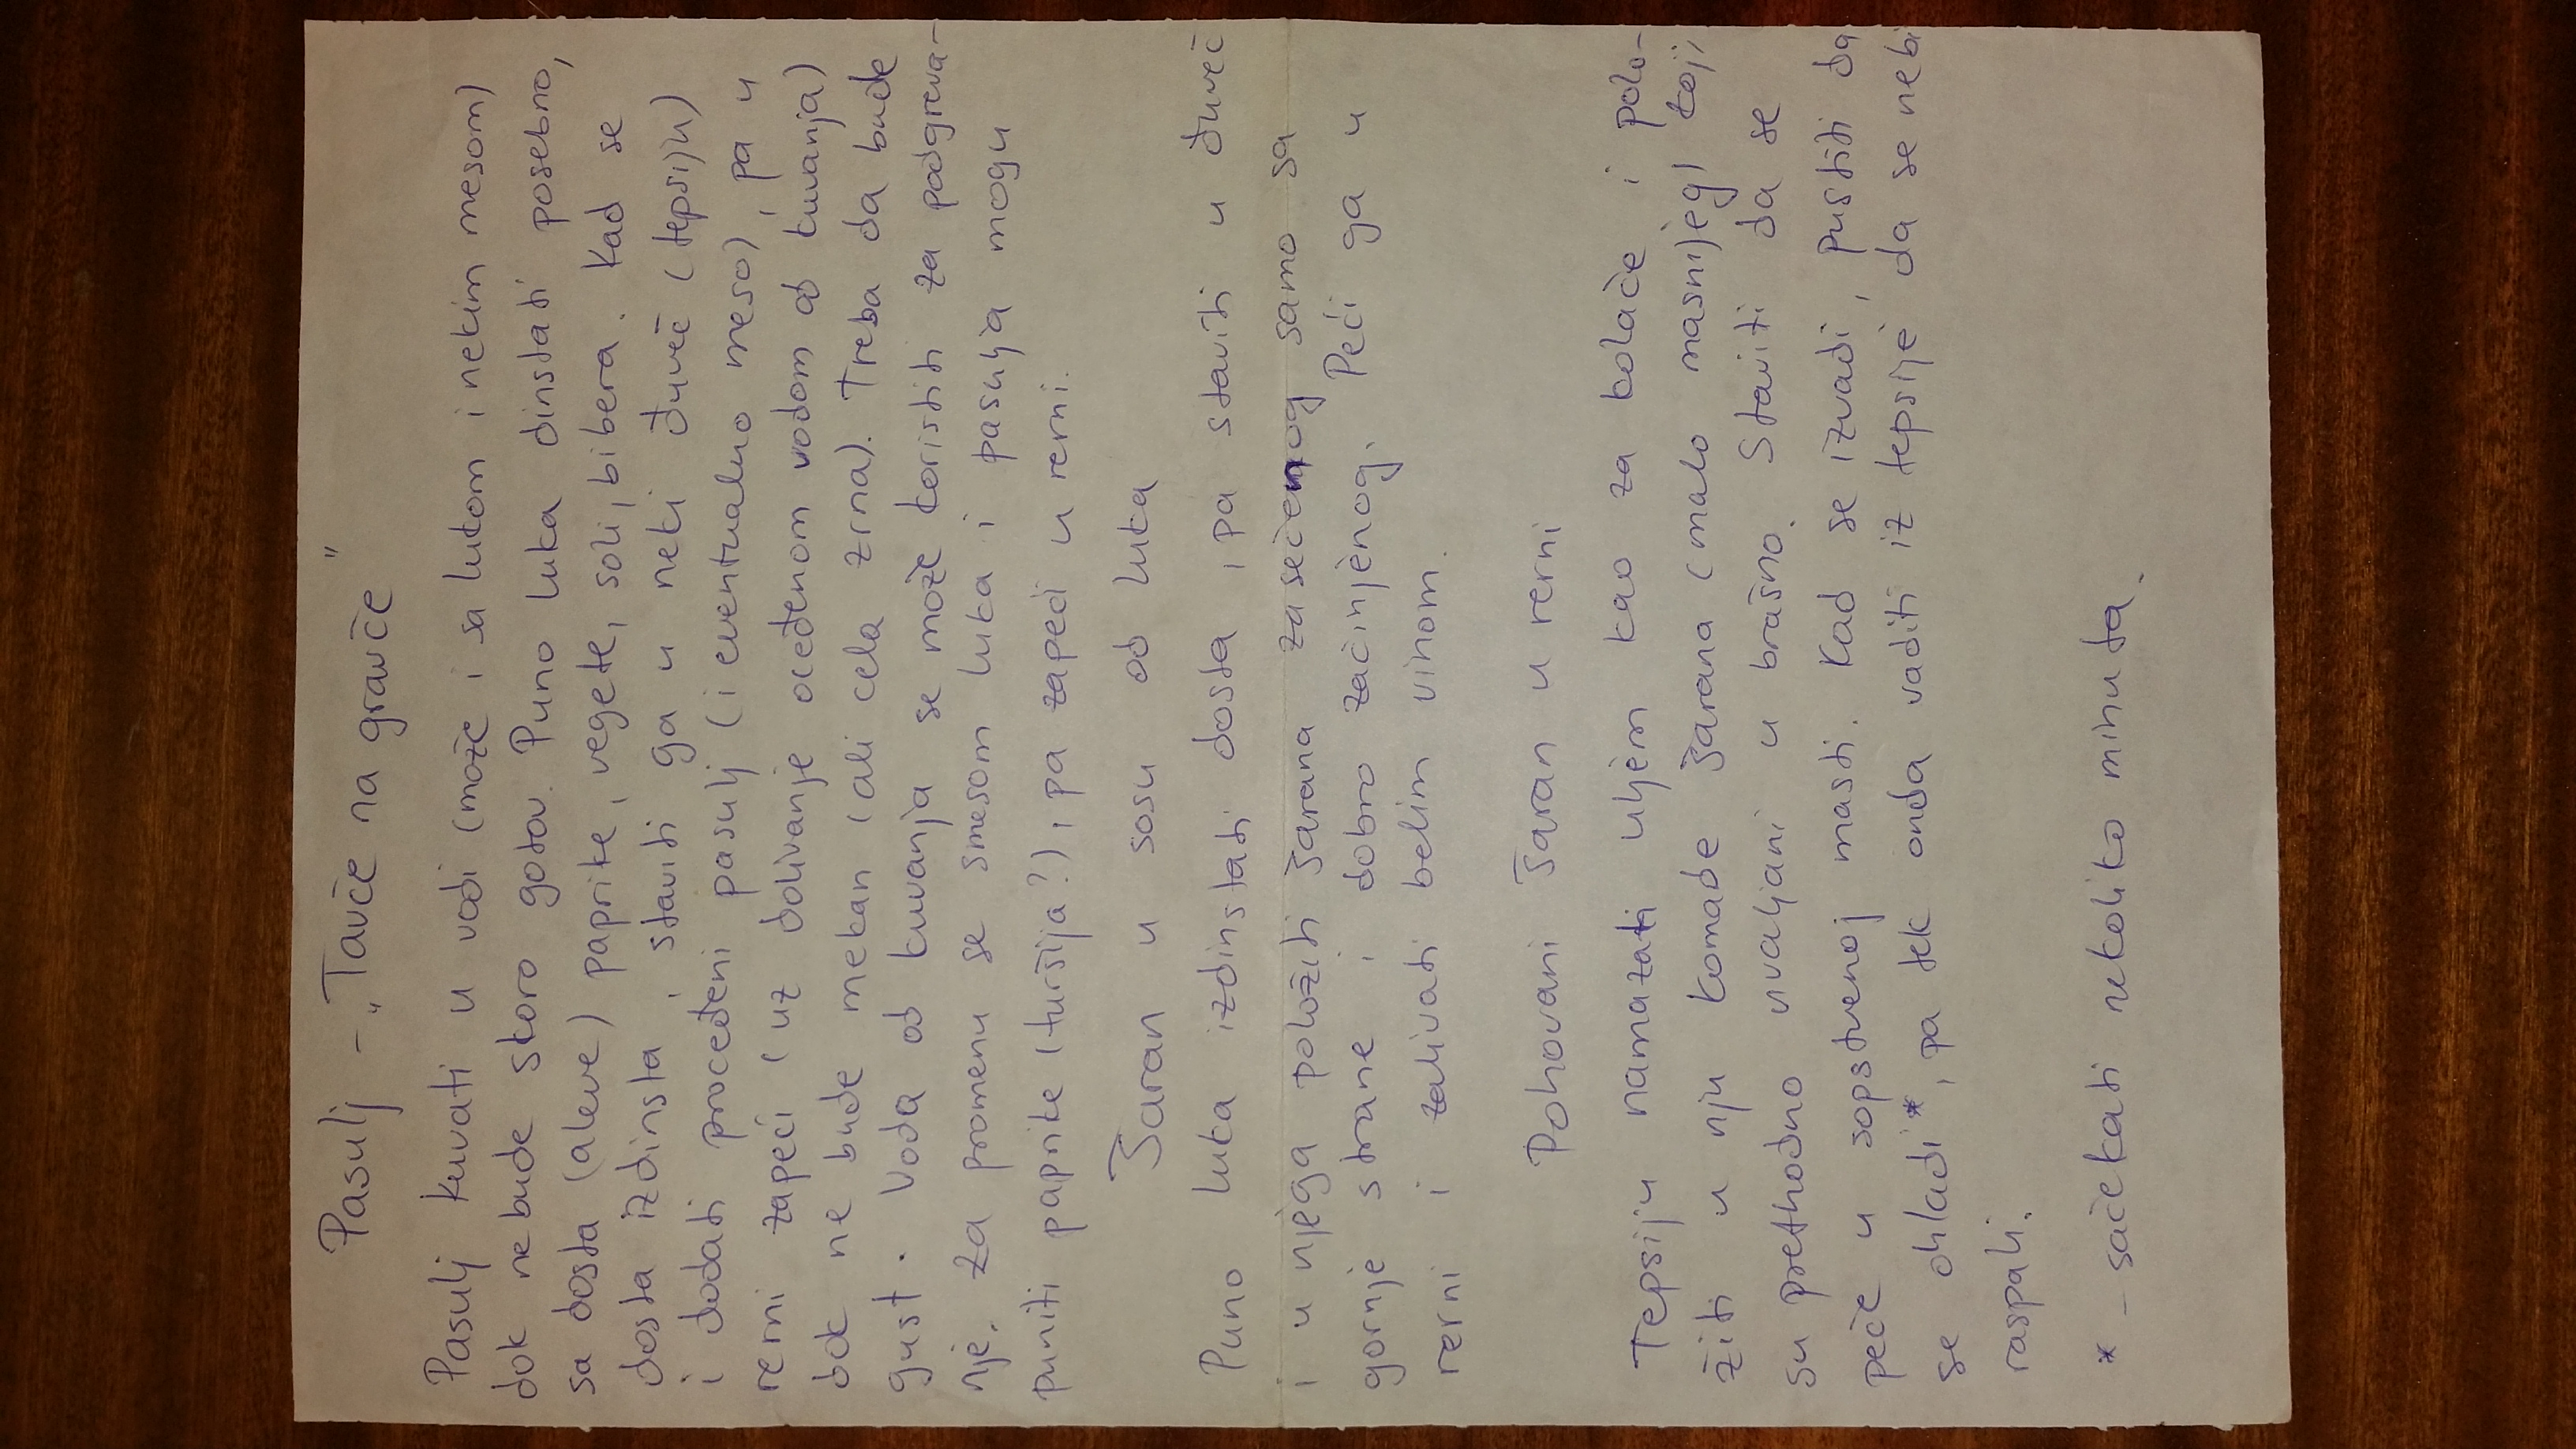 Pasulj - „Tavče na gravče"
Pasulj kuvati u vodi (može i sa lukom i nekim mesom)
dok ne bude skoro gotov. Puno luka dinstati posebno,
sa dosta (aleve) paprike, vegete, soli, bibera. Kad se
dosta izdinsta, staviti ga u neki đuveč (tepsiju)
i dodati proceđeni pasulj (i eventualno meso), pa u
rerni zapeći (uz dolivanje oceđenom vodom od kuvanja)
dok ne bude mekan (ali cela zrna). Treba da bude
gust. Voda od kuvanja se može koristiti za podgreva-
nje. Za promenu se smesom luka i pasulja mogu
puniti paprike (turšija?), pa zapeći u rerni.
Šaran u sosu od luka
Puno luka izdinstati dosta, pa staviti u đuveč
i u njega položiti šarana zasečenog samo sa
gornje strane i dobro začinjenog. Peći ga u
rerni i zalivati belim vinom.
Pohovani šaran u rerni
Tepsiju namazati uljem kao za kolače i polo-
žiti u nju komade šarana (malo masnijeg) koji
su prethodno uvaljani u brašno. Staviti da se
peče u sopstvenoj masti. Kad se izvadi, pustiti da
se ohladi*, pa tek onda vaditi iz tepsije da se nebi
raspali.
* - sačekati nekoliko minuta.